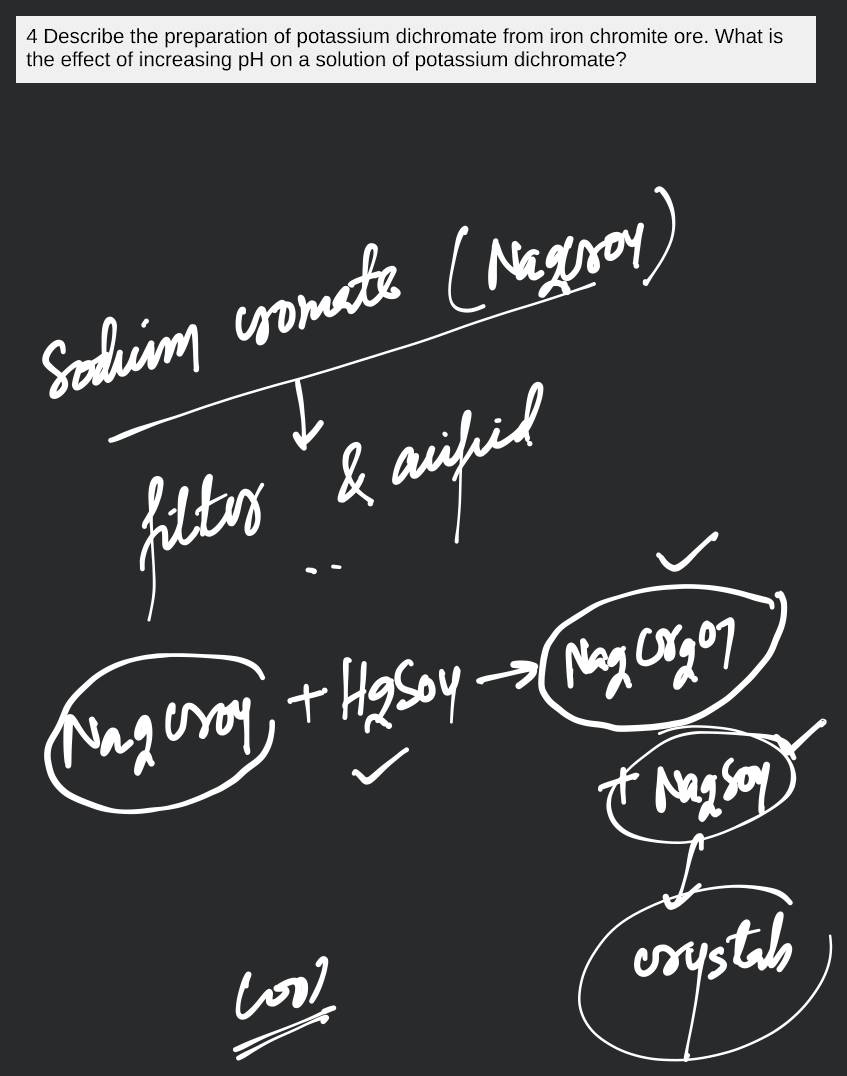 4 Describe the preparation of potassium dichromate from iron chromite ore. What is
the effect of increasing pH on a solution of potassium dichromate?
Sodium cromate (Na2CrO4)
filter & acified
Na2CrO4 + H2SO4 → Na2Cr2O7
+ Na2SO4
crystals
Cool